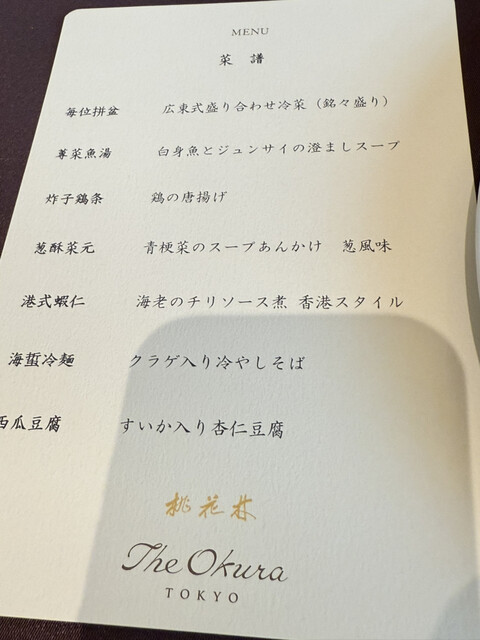 MENU
菜 譜
每位拼盆 広東式盛り合わせ冷菜（銘々盛り）
蓴菜魚湯 白身魚とジュンサイの澄ましスープ
炸子鶏条 鶏の唐揚げ
葱酥菜元 青梗菜のスープあんかけ 葱風味
港式蝦仁 海老のチリソース煮 香港スタイル
海蜇冷麺 クラゲ入り冷やしそば
西瓜豆腐 すいか入り杏仁豆腐
桃花林
The Okura
TOKYO